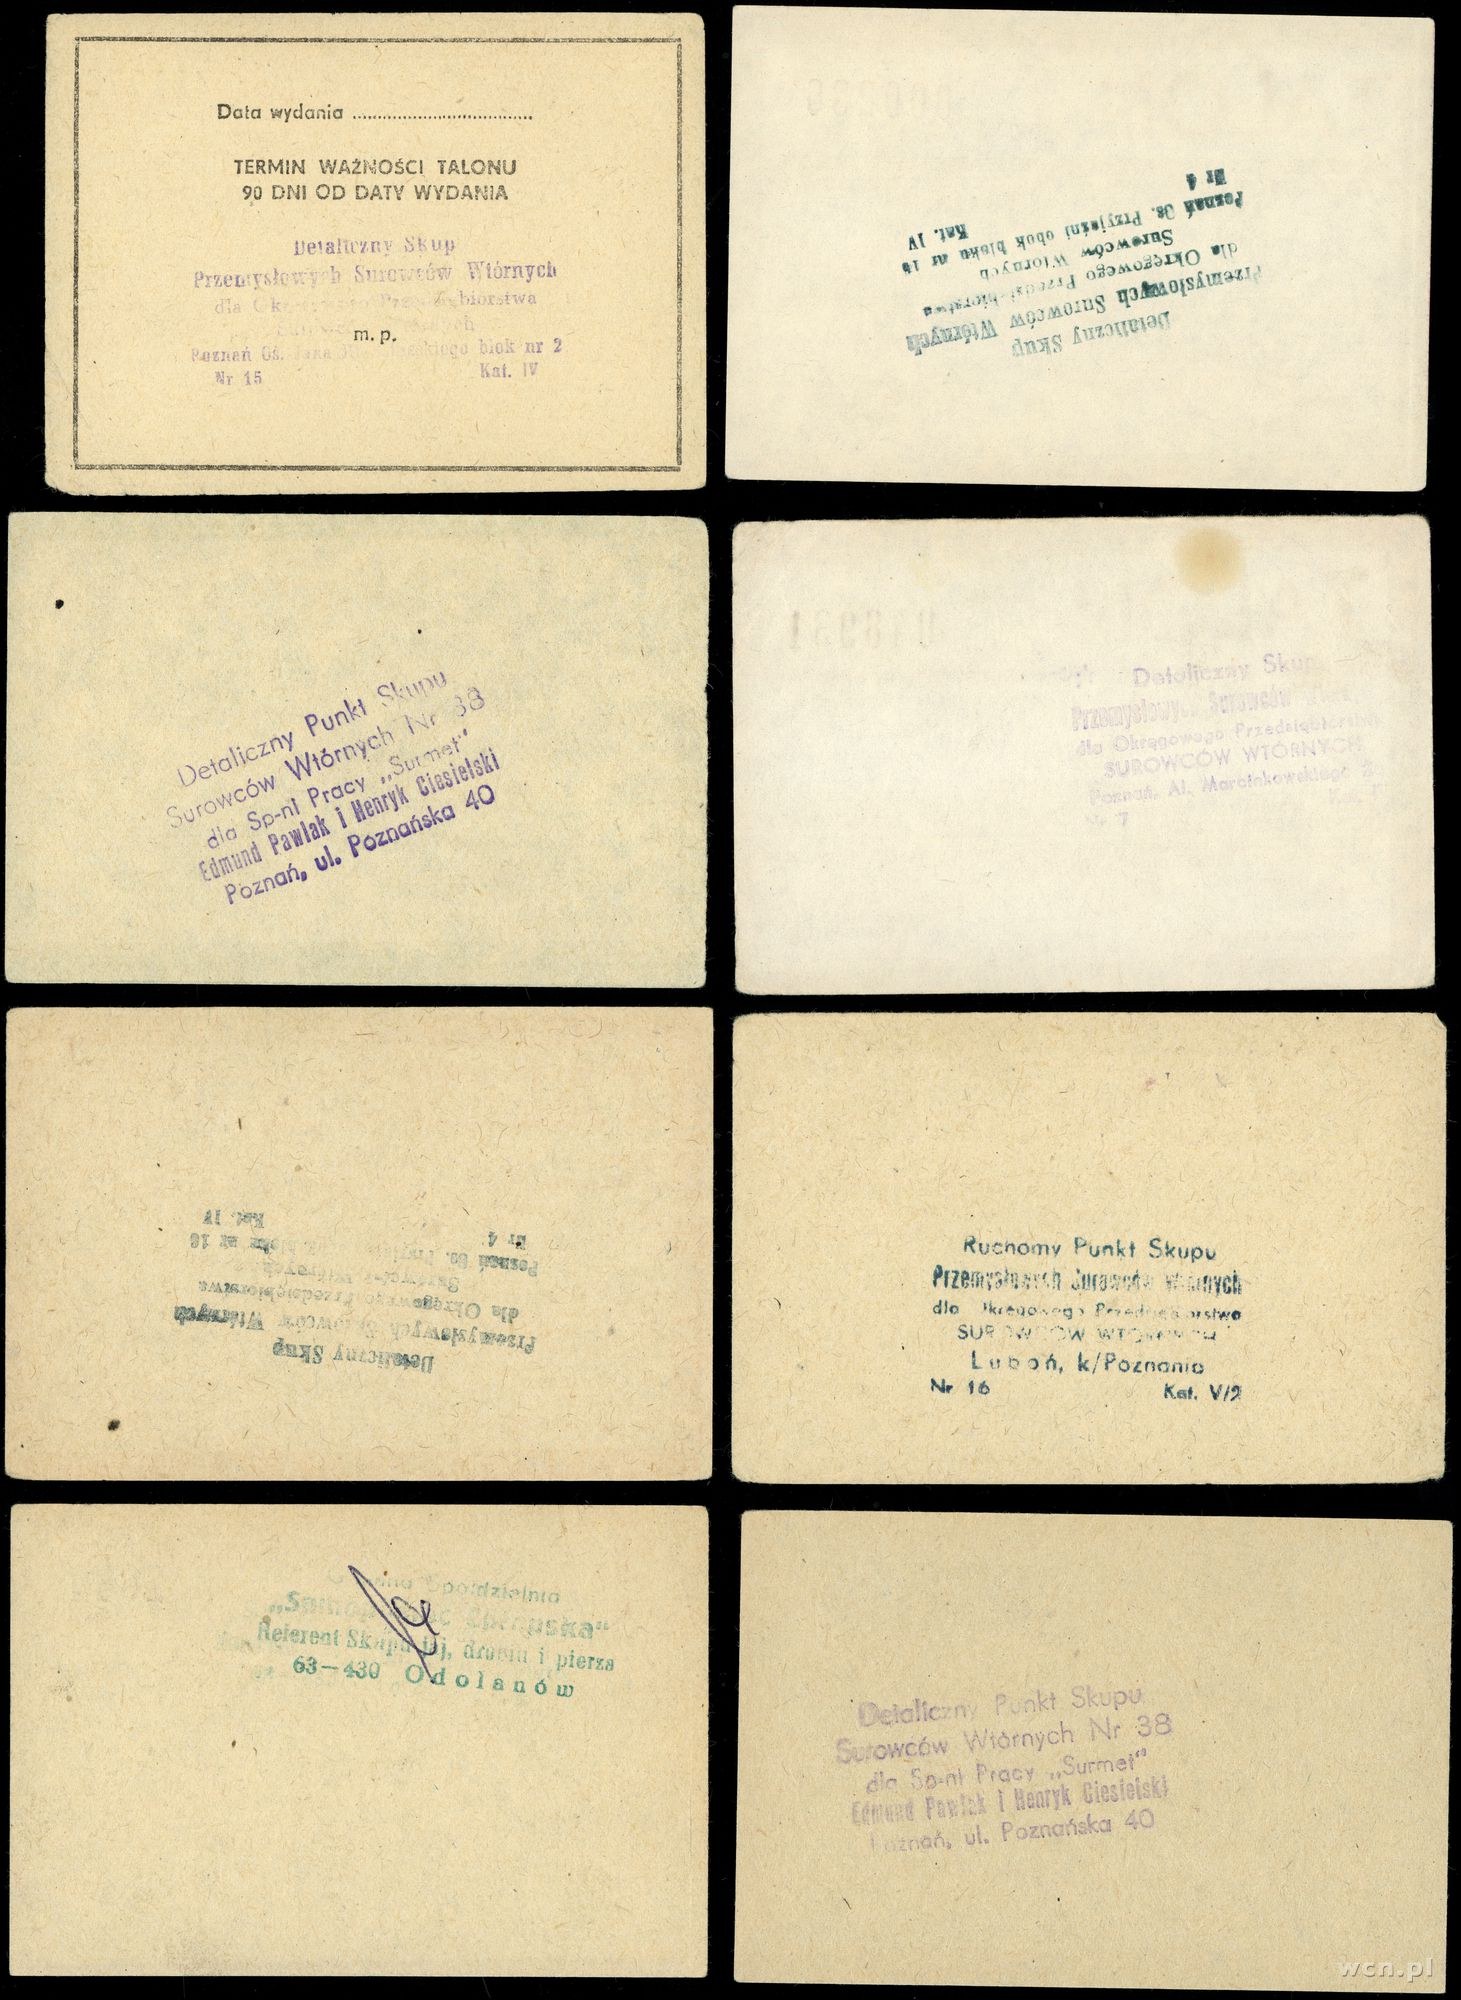 Data wydania
TERMIN WAŻNOŚCI TALONU
90 DNI OD DATY WYDANIA
Detaliczny Skup
Przemysłowych Surowców Wtórnych
dla
m.p.
Poznań Oś. blok nr 2
Nr 15 Kat. IV
Detaliczny Skup
Przemysłowych Surowców Wtórnych
dla Okręgowego Przedsiębiorstwa
Surowców Wtórnych
Poznań Os. Przyjaźni obok bloku nr 16
Nr 4 Kat. IV
Detaliczny Punkt Skupu
Surowców Wtórnych Nr 38
dla Sp-ni Pracy „Surmet"
Edmund Pawlak i Henryk Ciesielski
Poznań, ul. Poznańska 40
Detaliczny Skup
Przemysłowych Surowców
dla Okręgowego Przedsiębiorstwa
SUROWCÓW WTÓRNYCH
Poznań, Al. Marcinkowskiego
7
Detaliczny Skup
Przemysłowych Surowców Wtórnych
dla Okręgowego Przedsiębiorstwa
Surowców Wtórnych
Poznań Os. bloku nr 16
Nr 4
Kat. IV
Ruchomy Punkt Skupu
Przemysłowych Surowców Wtórnych
dla Okręgowego Przedsiębiorstwa
SUROWCÓW WTÓRNYCH
Luboń, k/Poznania
Nr 16 Kat. V/2
Spółdzielnia
Referent Skupu jaj, drobiu i pierza
63-430 Odolanów
Detaliczny Punkt Skupu
Surowców Wtórnych Nr 38
dla Sp-ni Pracy „Surmet"
Edmund Pawlak i Henryk Ciesielski
Poznań, ul. Poznańska 40
wcn.pl